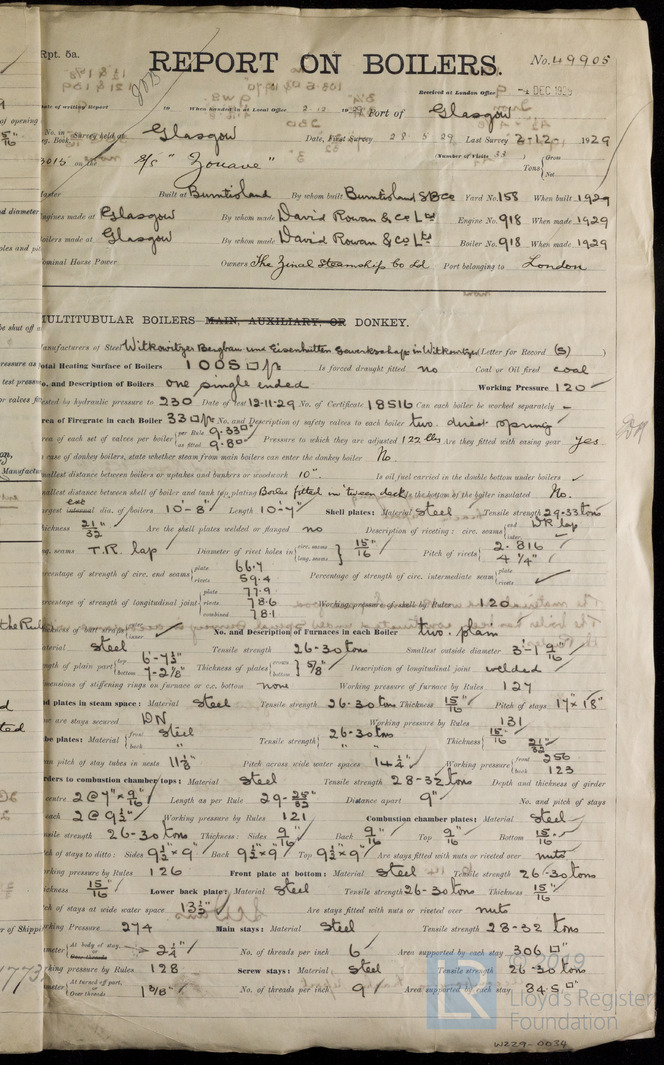 Rpt. 5a.
REPORT ON BOILERS.
No. 49905
Received at London Office
-4 DEC 1929
Date of writing Report 19 When handed in at Local Office 2.12.1929 Port of Glasgow
No. in Survey held at Glasgow Date, First Survey 28.5.29 Last Survey 2-12- 1929
Reg. Book.
on the S/S "Zouave" (Number of Visits 33) Tons {Gross Net
Master Built at Burntisland By whom built Burntisland S B Co Yard No. 158 When built 1929
Engines made at Glasgow By whom made David Rowan & Co Ltd Engine No. 918 When made 1929
Boilers made at Glasgow By whom made David Rowan & Co Ltd Boiler No. 918 When made 1929
Nominal Horse Power Owners The Zinal Steamship Co Ld Port belonging to London
MULTITUBULAR BOILERS MAIN, AUXILIARY, OR DONKEY.
Manufacturers of Steel Witkowitzer Bergbau und Eisenhütten Gewerkschaft in Witkowitz (Letter for Record (S) )
Total Heating Surface of Boilers 1005 □ft Is forced draught fitted no Coal or Oil fired coal
No. and Description of Boilers one single ended Working Pressure 120
Tested by hydraulic pressure to 230 Date of test 12-11-29 No. of Certificate 18516 Can each boiler be worked separately -
Area of Firegrate in each Boiler 33 □ft No. and Description of safety valves to each boiler two direct spring
Area of each set of valves per boiler {per Rule 9.33 □" as fitted 9.80 Pressure to which they are adjusted 122 lbs Are they fitted with easing gear yes
In case of donkey boilers, state whether steam from main boilers can enter the donkey boiler No.
Smallest distance between boilers or uptakes and bunkers or woodwork 10" Is oil fuel carried in the double bottom under boilers
Smallest distance between shell of boiler and tank top plating Boiler fitted in 'tween deck Is the bottom of the boiler insulated No.
Largest internal ext dia. of boilers 10'-8" Length 10'-7" Shell plates: Material Steel Tensile strength 29-33 tons
Thickness 21/32" Are the shell plates welded or flanged no Description of riveting: circ. seams {end DR lap inter.
long. seams T.R. lap Diameter of rivet holes in {circ. seams long. seams} 15/16" Pitch of rivets {2.816 4 1/4"
Percentage of strength of circ. end seams {plate 66.7 rivets 59.4 Percentage of strength of circ. intermediate seam {plate rivets
Percentage of strength of longitudinal joint {plate 77.9 rivets 78.6 combined 78.1 Working pressure of shell by Rules 120
Thickness of butt straps {outer inner No. and Description of Furnaces in each Boiler two plain
Material Steel Tensile strength 26-30 tons Smallest outside diameter 3'-1 9/16"
Length of plain part {top 6'-7 1/2" bottom 7-2 1/8" Thickness of plates {crown bottom} 5/8" Description of longitudinal joint welded
Dimensions of stiffening rings on furnace or c.c. bottom none Working pressure of furnace by Rules 127
End plates in steam space: Material Steel Tensile strength 26-30 tons Thickness 15/16" Pitch of stays 17" x 18"
How are stays secured DN Working pressure by Rules 131
Tube plates: Material {front Steel back " Tensile strength {26-30 tons " " Thickness {15/16" 21/32"
Mean pitch of stay tubes in nests 11 1/8" Pitch across wide water spaces 14 1/4" Working pressure {front 256 back 123
Girders to combustion chamber tops: Material Steel Tensile strength 28-32 tons Depth and thickness of girder
at centre 2 @ 7" x 9/16" Length as per Rule 29-25/32 Distance apart 9" No. and pitch of stays
in each 2 @ 9 1/2" Working pressure by Rules 121 Combustion chamber plates: Material Steel
Tensile strength 26-30 tons Thickness: Sides 9/16" Back 9/16" Top 9/16" Bottom 15/16"
Pitch of stays to ditto: Sides 9 1/2" x 9" Back 9 1/2" x 9" Top 9 1/2" x 9" Are stays fitted with nuts or riveted over nuts
Working pressure by Rules 126 Front plate at bottom: Material Steel Tensile strength 26-30 tons
Thickness 15/16" Lower back plate: Material Steel Tensile strength 26-30 tons Thickness 15/16"
Pitch of stays at wide water space 13 1/2" Are stays fitted with nuts or riveted over nuts
Working Pressure 274 Main stays: Material Steel Tensile strength 28-32 tons
Diameter {At body of stay, Over threads 2 1/4" No. of threads per inch 6 Area supported by each stay 306 □"
Working pressure by Rules 128 Screw stays: Material Steel Tensile strength 26-30 tons
Diameter {At turned off part, Over threads 1 5/8" No. of threads per inch 9 Area supported by each stay 84.5 □"
© 2019
LR
Lloyd's Register
Foundation
W229-0034